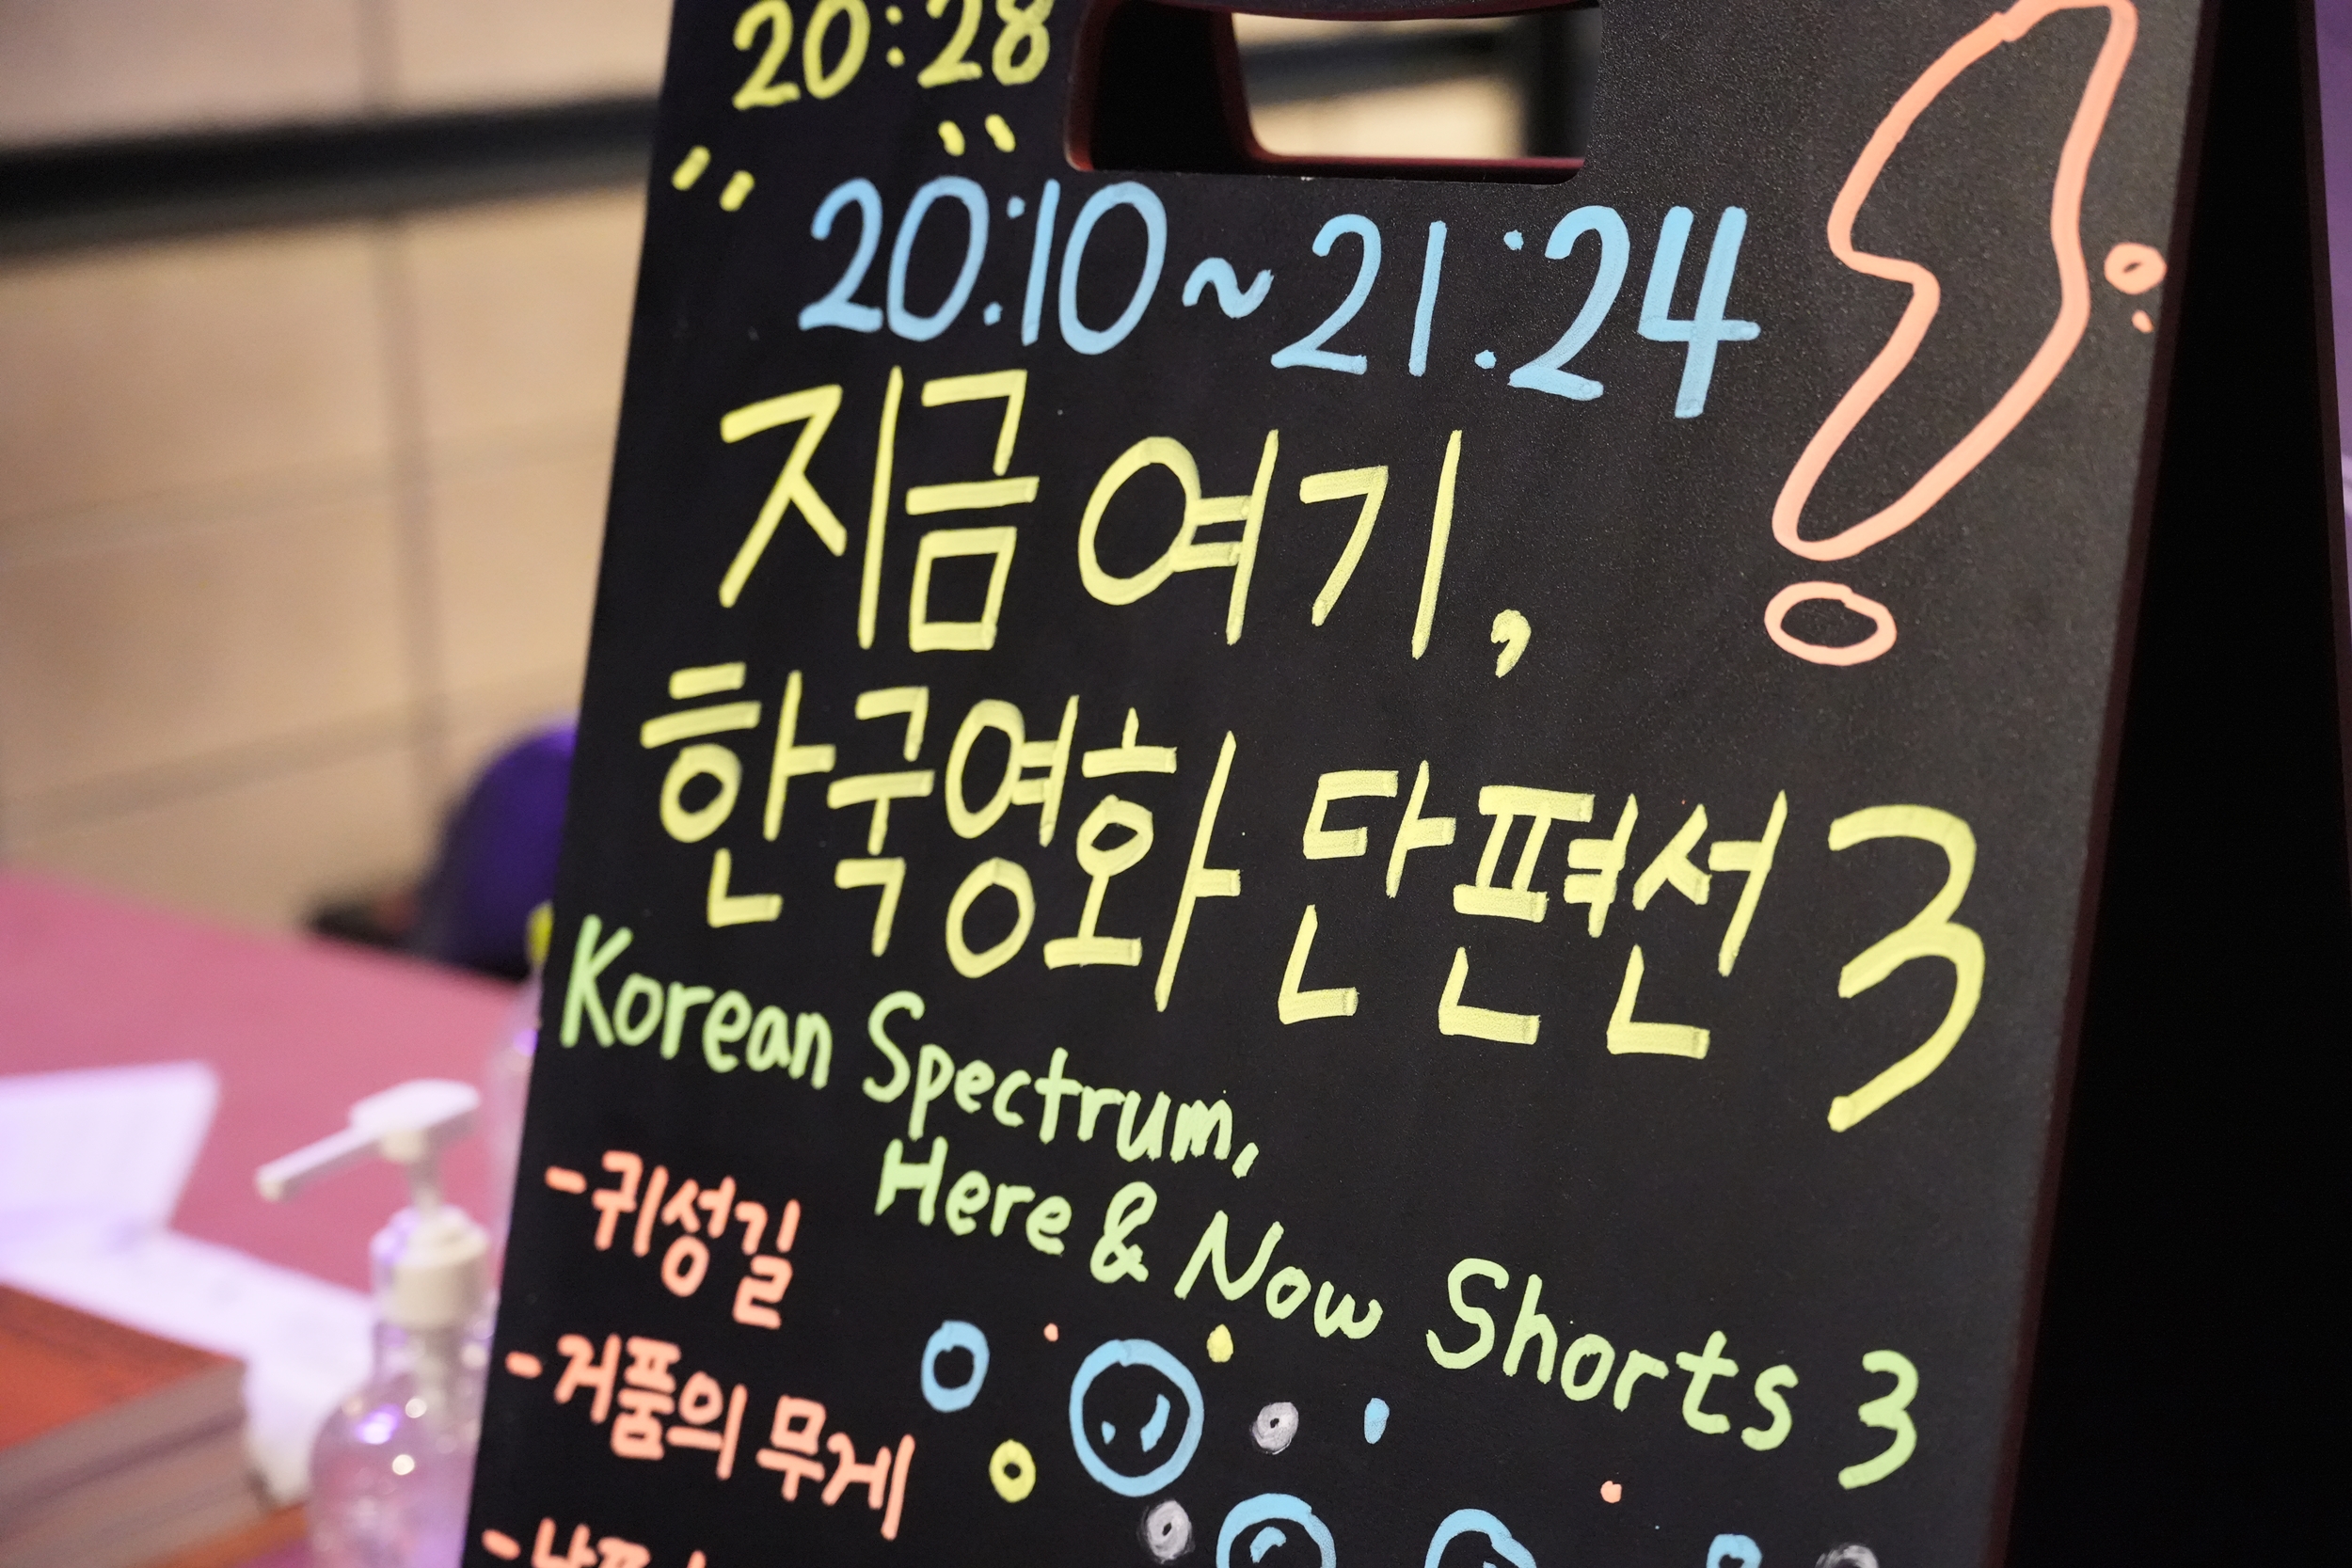 20:28
20:10~21:24
지금 여기,
한국영화 단편선 3
Korean Spectrum,
Here & Now Shorts 3
-귀성길
-거품의 무게